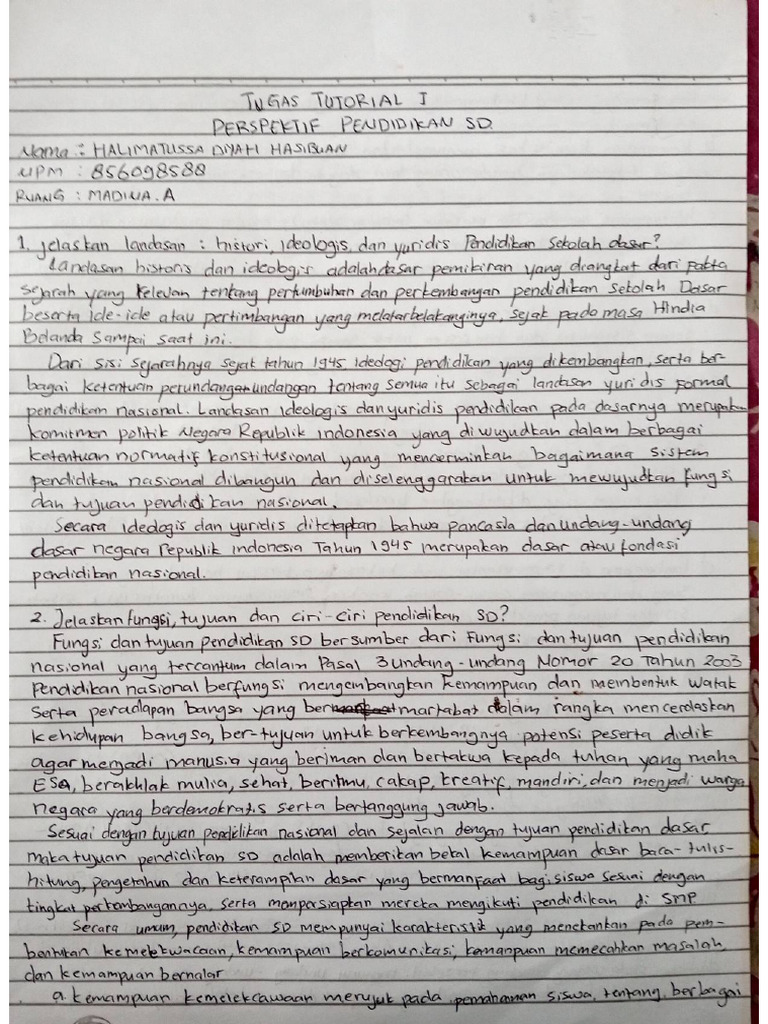 TUGAS TUTORIAL I
PERSPEKTIF PENDIDIKAN SD.
Nama : HALIMATUSSA DIYAH HASIBUAN
NPM : 856098588
RUANG : MADINA.A
1. Jelaskan landasan : histori, ideologis, dan yuridis Pendidikan Sekolah dasar?
Landasan historis dan ideologis adalah dasar pemikiran yang diangkat dari fakta
sejarah yang relevan tentang pertumbuhan dan perkembangan pendidikan Sekolah Dasar
beserta ide-ide atau pertimbangan yang melatarbelakanginya, sejak pada masa Hindia
Belanda Sampai saat ini.
Dari sisi sejarahnya sejak tahun 1945 Ideologi pendidikan yang dikembangkan, serta ber-
bagai ketentuan perundangan-undangan tentang semua itu sebagai landasan yuridis formal
pendidikan nasional. Landasan Ideologis dan yuridis pendidikan pada dasarnya merupakan
komitmen politik Negara Republik indonesia yang diwujudkan dalam berbagai
ketentuan normatif konstitusional yang mencerminkan bagaimana sistem
pendidikan nasional dibangun dan diselenggarakan untuk mewujudkan fungsi
dan tujuan pendidikan nasional.
Secara Ideologis dan yuridis ditetapkan bahwa pancasila dan undang-undang
dasar negara Republik indonesia Tahun 1945 merupakan dasar atau fondasi
pendidikan nasional.
2. Jelaskan fungsi, tujuan dan ciri-ciri pendidikan SD?
Fungsi dan tujuan pendidikan SD bersumber dari Fungsi dan tujuan pendidikan
nasional yang tercantum dalam Pasal 3 undang-undang Nomor 20 Tahun 2003
Pendidikan nasional berfungsi mengembangkan kemampuan dan membentuk watak
Serta peradapan bangsa yang bermartabat dalam rangka mencerdaskan
kehidupan bangsa, ber-tujuan untuk berkembangnya potensi peserta didik
agar menjadi manusia yang beriman dan bertakwa kepada tuhan yang maha
ESA, berakhlak mulia, sehat, berilmu, cakap, kreatif, mandiri, dan menjadi warga
negara yang berdemokratis serta bertanggung jawab.
Sesuai dengan tujuan pendidikan nasional dan sejalan dengan tujuan pendidikan dasar
maka tujuan pendidikan SD adalah memberikan bekal kemampuan dasar baca-tulis-
hitung, pengetahun dan keterampilan dasar yang bermanfaat bagi siswa sesuai dengan
tingkat perkembanganaya, serta mempersiapkan mereka mengikuti pendidikan di SMP
Secara umum, pendidikan SD mempunyai karakteristik yang menekankan pada pem-
bentukan kemelekwacaan, kemampuan berkomunikasi, kemanpuan memecahkan masalah
dan kemampuan bernalar
a. kemampuan kemelekcawaan merujuk pada pemahaman siswa tentang berbagai